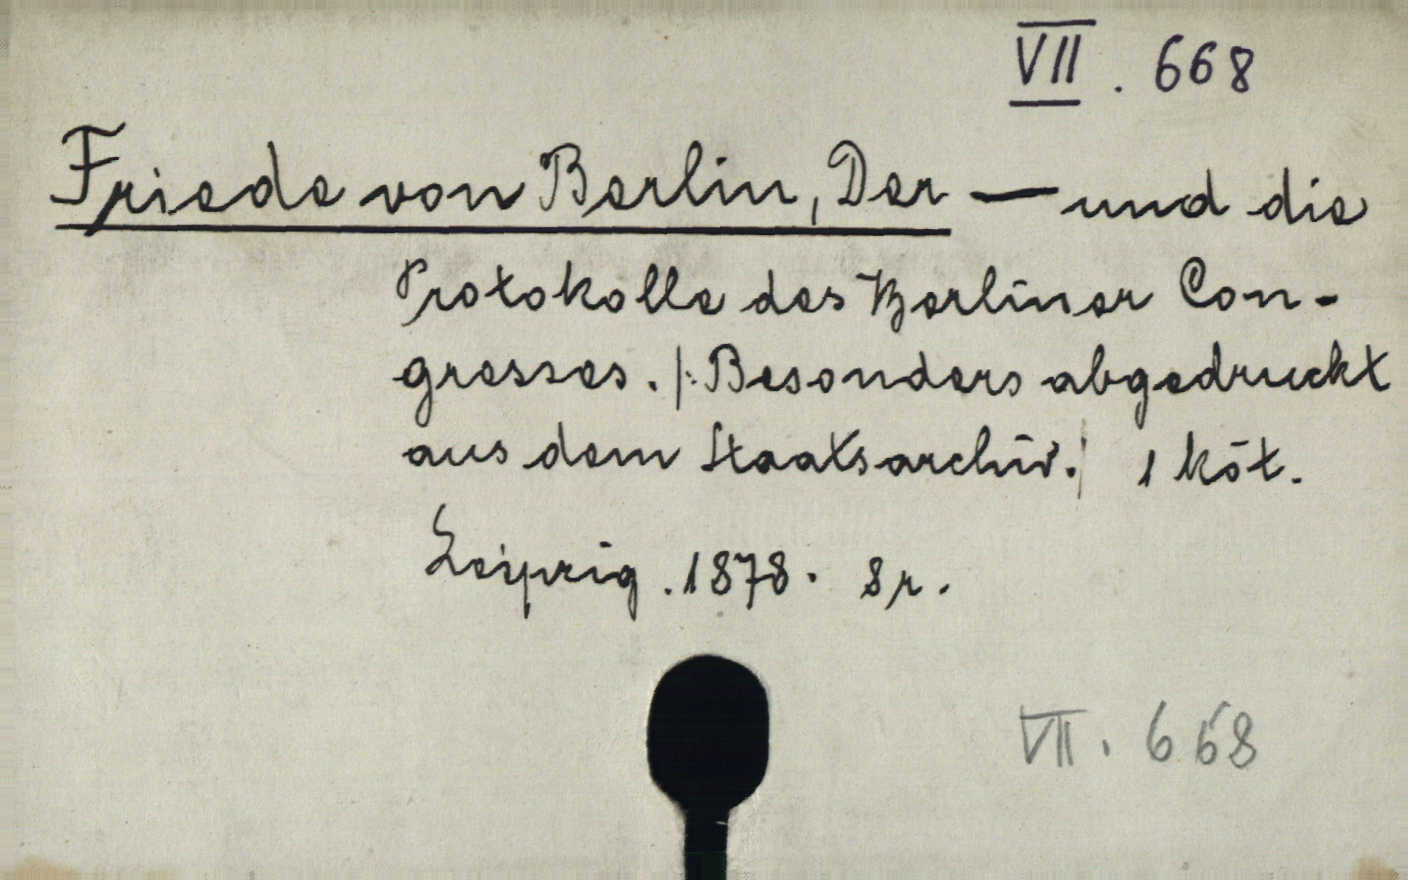 VII. 668
Friede von Berlin, Der — und die
Protokolle des Berliner Con-
gresses. |: Besonders abgedruckt
aus dem Staatsarchiv. | 1 köt.
Leipzig. 1878. 8r.
VII. 668